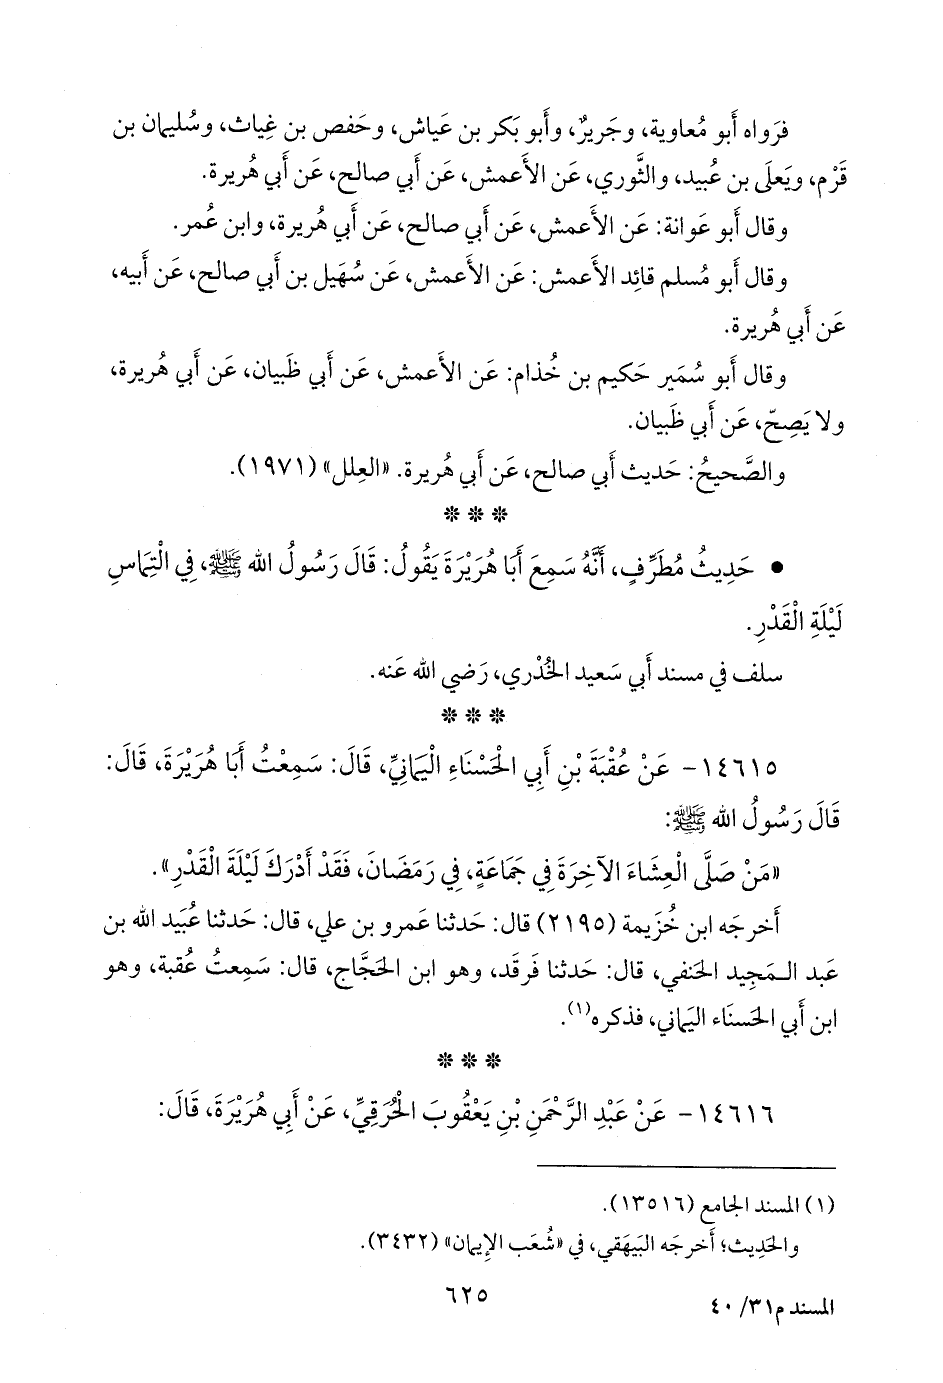 فرَواه أَبو مُعاوية، وجَريرٌ، وأَبو بَكر بن عَياش، وحَفص بن غِياث، وسُليمان بن
قَرْم، ويَعلَى بن عُبيد، والثَّوري، عَن الأَعمش، عَن أَبي صالح، عَن أَبي هُريرة.
وقال أَبو عَوانة: عَن الأَعمش، عَن أَبي صالح، عَن أَبي هُريرة، وابن عُمر.
وقال أَبو مُسلم قائِد الأَعمش: عَن الأَعمش، عَن سُهَيل بن أَبي صالح، عَن أَبيه،
عَن أَبي هُريرة.
وقال أَبو سُمَير حَكيم بن خُذام: عَن الأَعمش، عَن أَبي ظَبيان، عَن أَبي هُريرة،
ولا يَصِحّ، عَن أَبي ظَبيان.
والصَّحيحُ: حَديث أَبي صالح، عَن أَبي هُريرة. «العِلل» (١٩٧١).
***
• حَدِيثُ مُطَرِّفٍ، أَنَّهُ سَمِعَ أَبَا هُرَيْرَةَ يَقُولُ: قَالَ رَسُولُ الله ﷺ، فِي الْتِمَاسِ
لَيْلَةِ الْقَدْرِ.
سلف في مسند أَبي سَعيد الخُدْري، رَضي الله عَنه.
***
١٤٦١٥- عَنْ عُقْبَةَ بْنِ أَبِي الْحَسْنَاءِ الْيَمَانِيِّ، قَالَ: سَمِعْتُ أَبَا هُرَيْرَةَ، قَالَ:
قَالَ رَسُولُ الله ﷺ:
«مَنْ صَلَّى الْعِشَاءَ الآخِرَةَ فِي جَمَاعَةٍ، فِي رَمَضَانَ، فَقَدْ أَدْرَكَ لَيْلَةَ الْقَدْرِ».
أَخرجَه ابن خُزيمة (٢١٩٥) قال: حَدثنا عَمرو بن علي، قال: حَدثنا عُبَيد الله بن
عَبد المَجِيد الحَنفي، قال: حَدثنا فَرقَد، وهو ابن الحَجَّاج، قال: سَمِعتُ عُقبة، وهو
ابن أَبي الحَسنَاء اليَماني، فذكره(١).
***
١٤٦١٦- عَنْ عَبْدِ الرَّحْمَنِ بْنِ يَعْقُوبَ الْحُرَقِيِّ، عَنْ أَبِي هُرَيْرَةَ، قَالَ:
(١) المسند الجامع (١٣٥١٦).
والحَدِيث؛ أَخرجَه البَيهَقي، في «شُعَب الإِيمان» (٣٤٣٢).
٦٢٥
المسند م٣١/ ٤٠